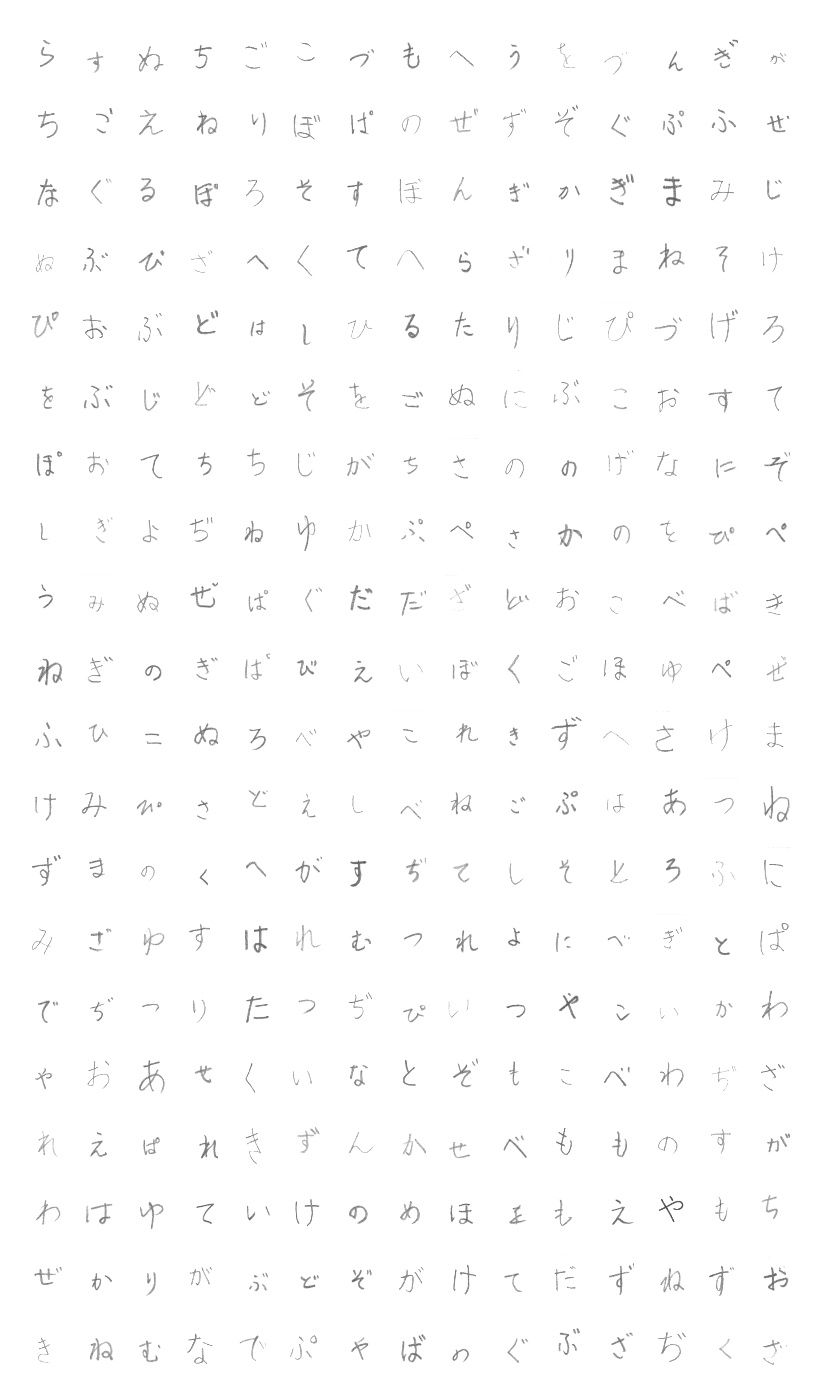 らすぬちごこづもへうをづんぎが
ちごえねりぼぱのぜずぞぐぷふぜ
なぐるぽろそすぼんぎかぎまみじ
ぬぶぴざへくてへらざりまねそけ
ぴおぶどはしひるたりじぴづげろ
をぶじどどそをごぬにぶこおすて
ぽおてちちじがちさののげなにぞ
しぎよぢねゆかぷぺさかのをぴぺ
うみぬぜぱぐだだざどおこべばき
ねぎのぎぱびえいぼくごほゆぺぜ
ふひこぬろべやこれきずへさけま
けみぴさどえしべねごぷはあつね
ずまのくへがすぢてしそとろふに
みざゆすはれむつれよにべぎとぱ
でぢつりたつぢぴいつやこいかわ
やおあせくいなとぞもこべわぢざ
れえぱれきずんかせべもものすが
わはゆていけのめほをもえやもち
ぜかりがぶどぞがけてだずねずお
きねむなでぷやばのぐぶざぢくざ